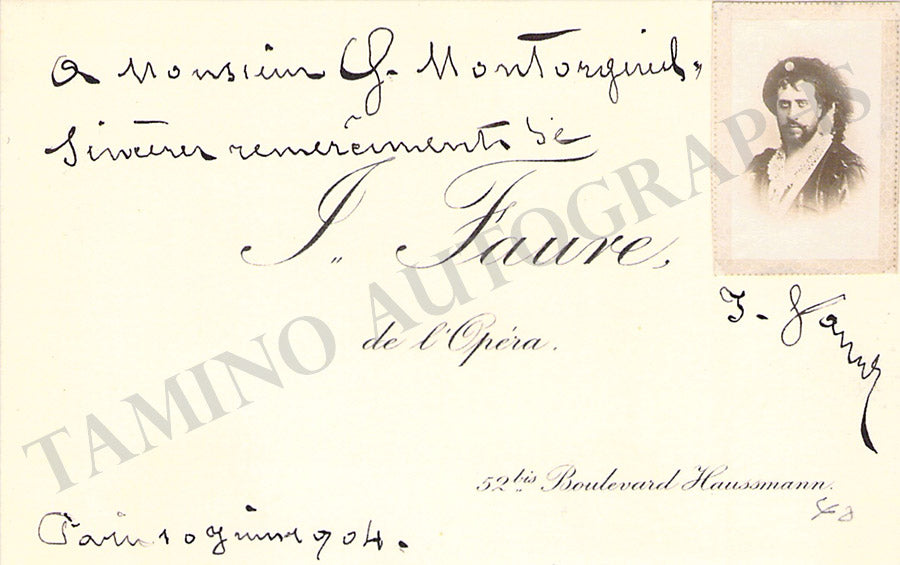 A Monsieur G. Montorgueil,
Sincères remerciements de
J. Faure,
de l'Opéra.
J. Faure
52 bis Boulevard Haussmann.
Paris 10 Juin 1904.
TAMINO AUTOGRAPHS